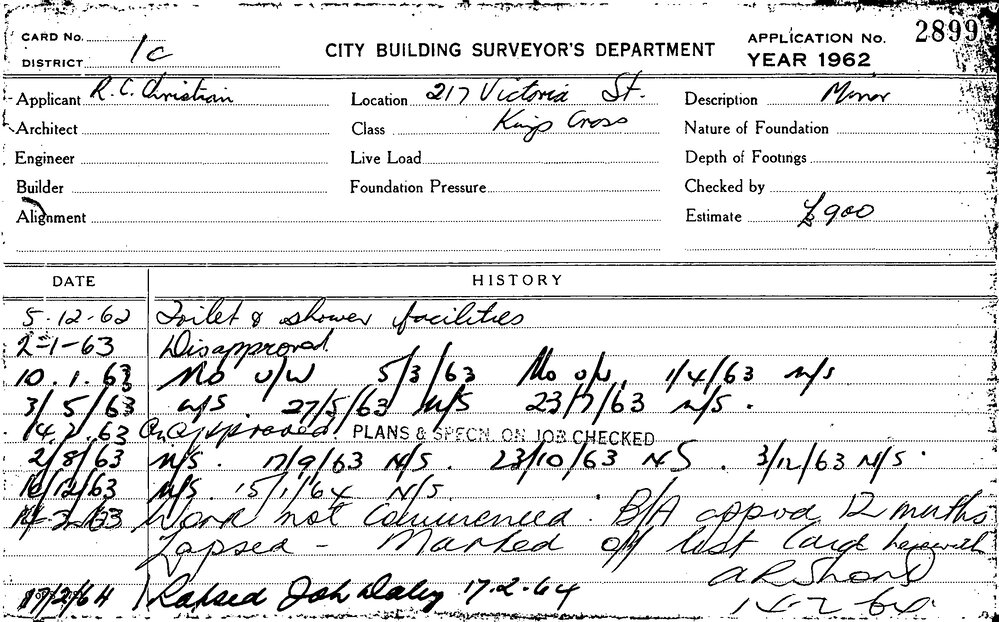 CARD No.
DISTRICT 1C
CITY BUILDING SURVEYOR'S DEPARTMENT
APPLICATION No. 2899
YEAR 1962
Applicant R. C. Christian Location 217 Victoria St. Description Minor
Architect Class Kings Cross Nature of Foundation
Engineer Live Load Depth of Footings
Builder Foundation Pressure Checked by
Alignment Estimate £900
DATE HISTORY
5.12.62 Toilet & shower facilities
2-1-63 Disapproved.
10.1.63 No U/W 5/3/63 No U/W. 1/4/63 N/S
3/5/63 N/S. 27/5/63 N/S 23/7/63 N/S.
14.2.63 Approved. PLANS & SPECN. ON JOB CHECKED
2/8/63 N/S. 17/9/63 N/S. 23/10/63 NS. 3/12/63 N/S.
16/12/63 N/S. 15/1/64 N/S.
Work not Commenced. B/A approd 12 months
Lapsed - Marked off list Card herewith
14-2-64.
17/2/64 Lapsed Job Daley 17.2.64